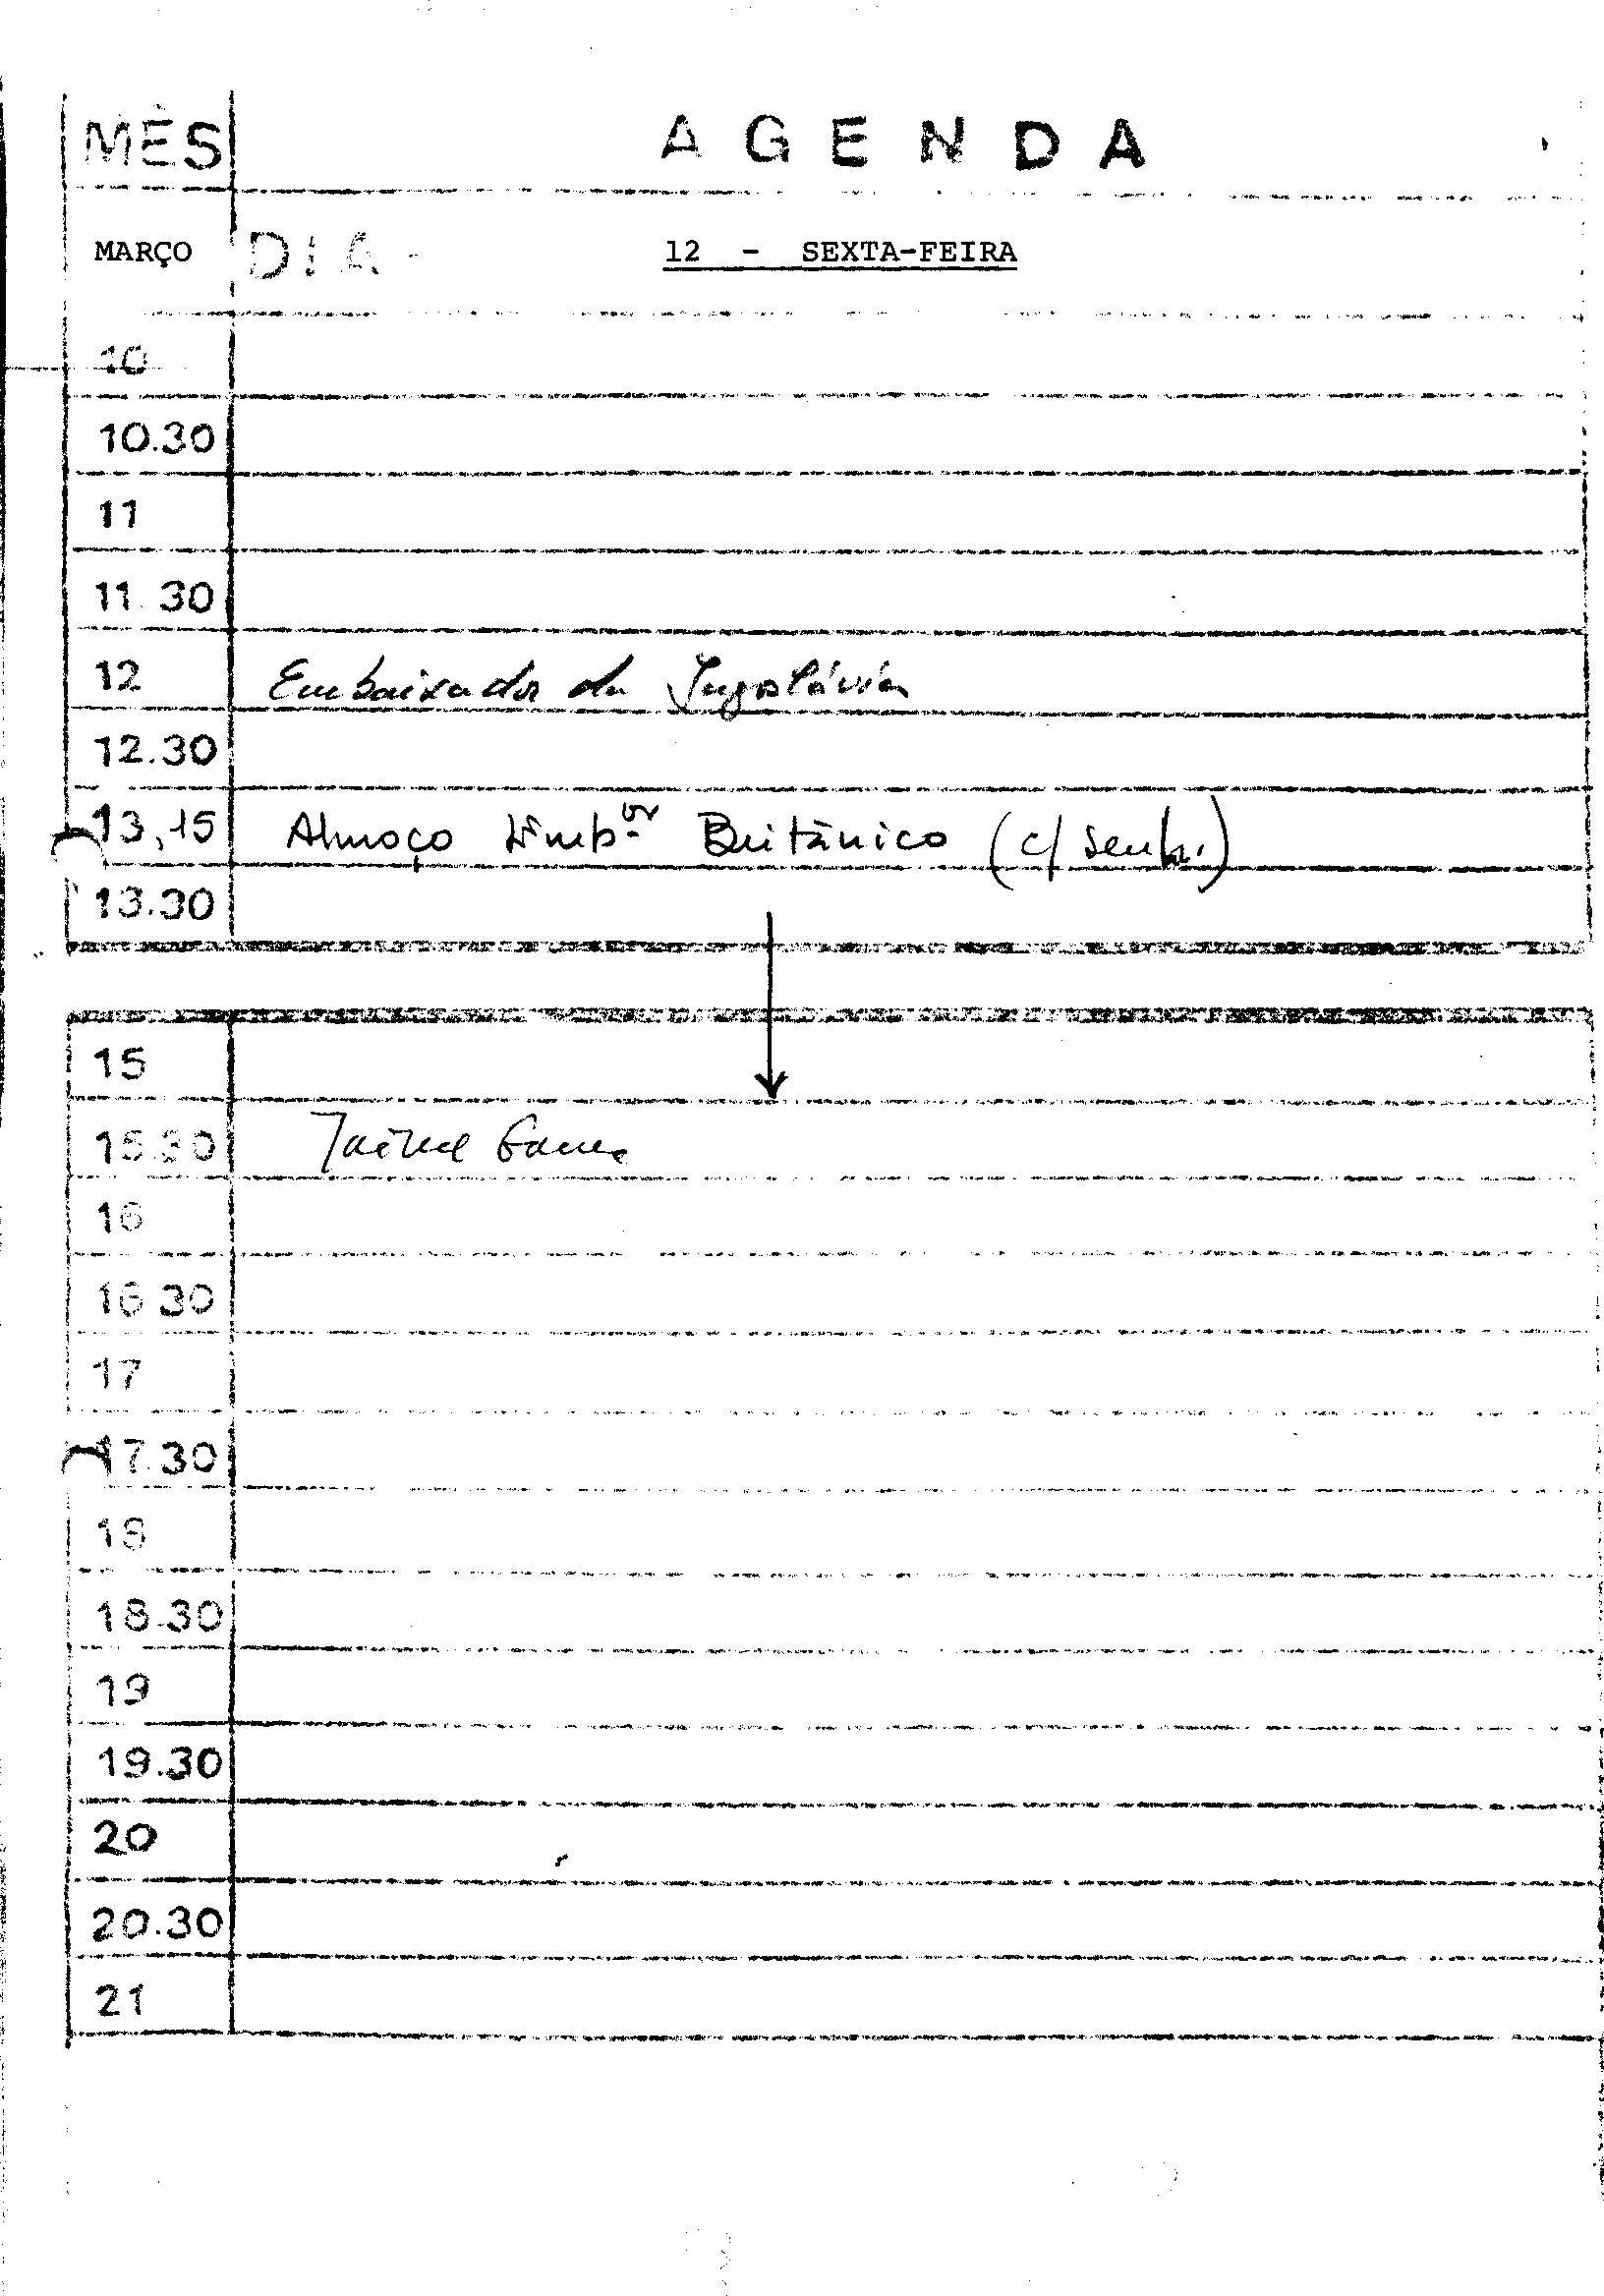 MÊS AGENDA
MARÇO DIA 12 - SEXTA-FEIRA
10
10.30
11
11.30
12 Embaixador da Jugoslávia
12.30
13,15 Almoço Emb.or Britânico (c/ senh.)
13.30
15
15.30 Jaime Gama
16
16 30
17
17.30
18
18.30
19
19.30
20
20.30
21